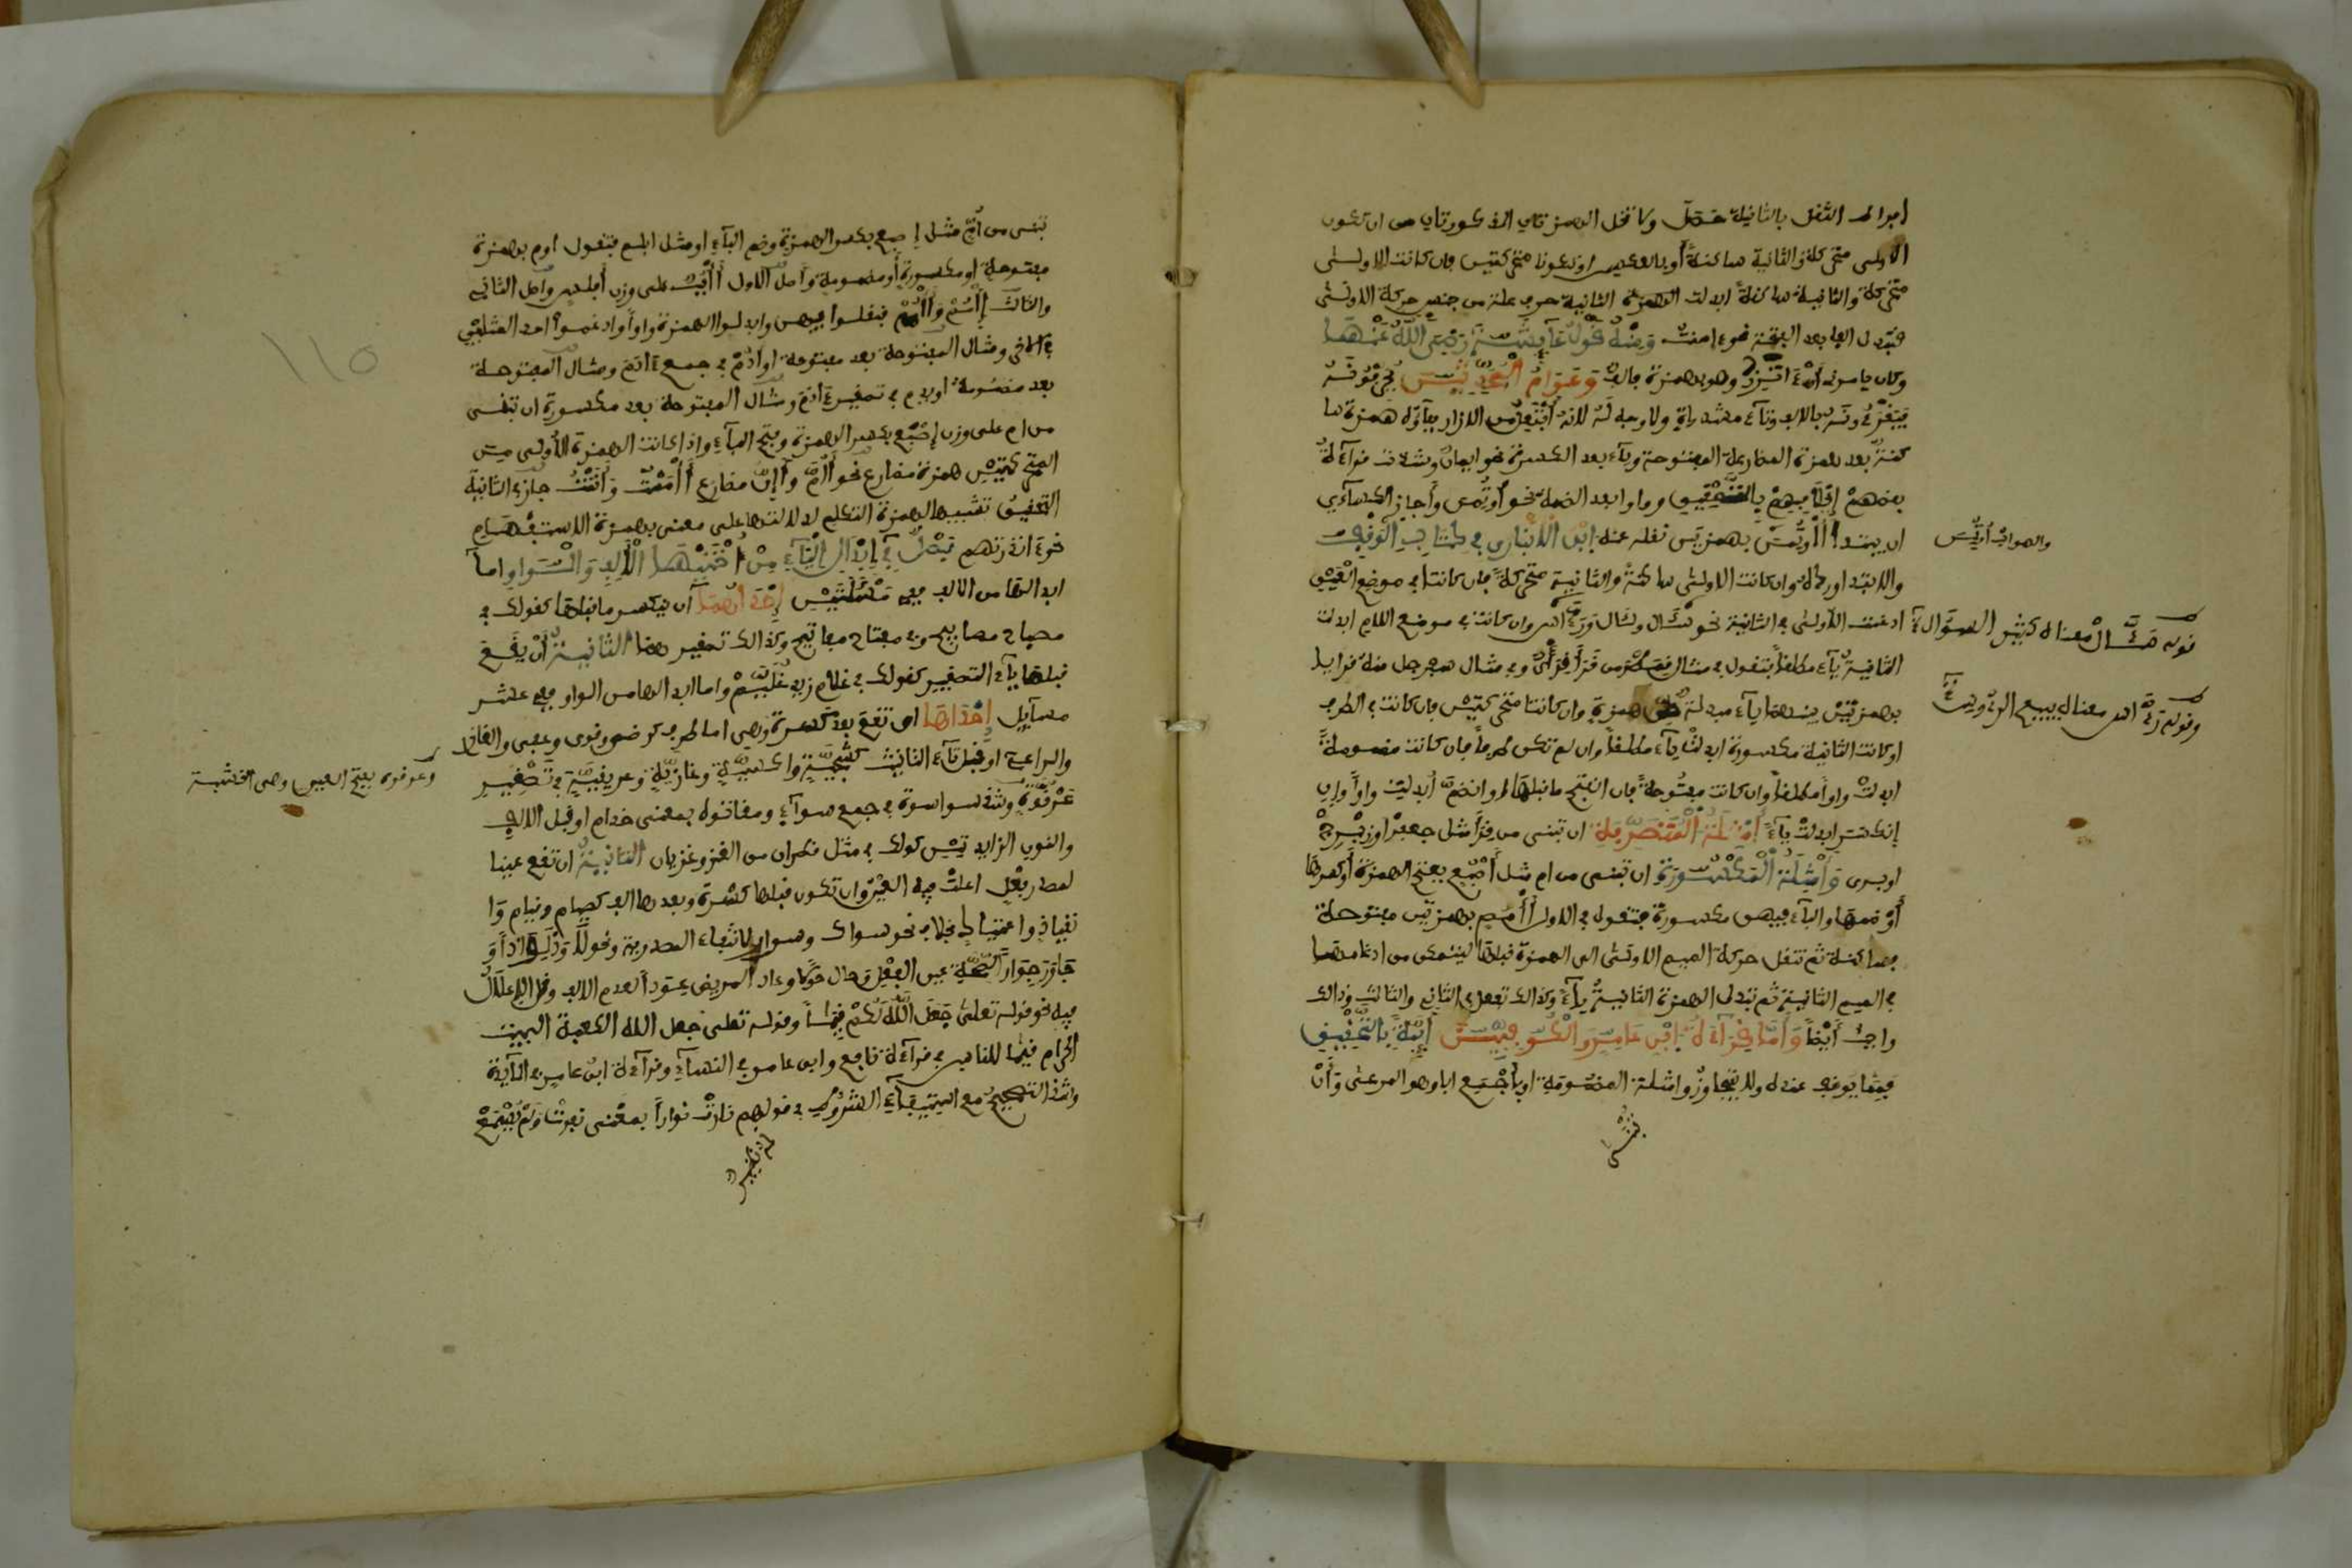 افراط الثقل بالثانية حصل ولا تخل الهمزتان المذكورتان من ان تكون
الاولى متحركة والثانية ساكنةً أو بالعكس او تكونا متحركتين فان كانت الاولى
متحركة والثانية ساكنةً ابدلت الهمزة الثانية حرف علة من جنس حركة الاولى
فتبدل الفا بعد الفتحة نحو ءامنت وَمِنْهُ قَوْلُ عَآيِشَةَ رَضِيَ اللَّهُ عَنْهَا
وكان يامرني أن ءاتزر وهو بهمزة فالف وَعَوَامُّ الْمُحَدِّثِينَ يُحَرِّفُونَهُ
فَيَقْرَءُونَهُ بالالف وتآء مشددة ولا وجه لَهُ لانهُ افتعل من الازار ففآؤه همزة سا
كنةٌ بعد همزة المضارعة المفتوحة ويآء بعد الكسرة نحو ايمان وشذت قرآءةُ
بعضهم إِئْلَافِهِمْ بِالتَّحْقِيقِ وواوا بعد الضمة نحو أُوتُمِن وأجاز الكسآءي
ان يبتدأ أُاوتُمنَ بهمزتين نقله عنه ابْنُ الَانْبَارِي في كِتَابِ الْوَقْفِ
والابتدا ورده وان كانت الاولى ساكنةً والثانية متحركةً فان كانتا في موضع العَيْنِ
ادغمت الاولى في الثانية نحو سَئَّال ولئَّال ورءَّاس وان كانتا في موضع اللام ابدلت
الثانية يآء مطلقاً فتقول في مثال قمطر من قرأ قِرَأْيٌ وفي مثال سفرجل منه قرايا
بهمزتين بينهما يآء مبدلة من همزة وان كانتا متحركتين فان كانتا في الطرف
او كانت الثانية مكسورة ابدلتْ يآء مطلقاً وان لم تكن طرفاً فان كانت مضمومةً
ابدلتْ واواً مطلقاً وان كانت مفتوحةً فان انفتح ما قبلها او انضمَّ ابدلت واواً وإن
إنكسر ابدلتْ يآءً أَمْثِلَةُ الْمُتَطَرِّفَةِ ان تبني من قرأَ مثل جعفر أو زِبْرِج
او برثن وَأَمْثِلَةُ الْمَكْسُورَةِ ان تبني من ام مثل أَصْبِع بفتح الهمزة أو كسرها
أَوْ ضمها والبآء فيهن مكسورة فتقول في الاول أَأْمِم بهمزتين مفتوحة
فساكنة ثم تنقل حركة الميم الاولى الى الهمزة قبلها ليتمكن من ادغامها
في الميم الثانية ثم تبدل الهمزة الثانية يآءً وكذلك تفعل في الثاني والثالث وذلك
واجب أَيْضاً وَأَمَّا قِرَآءَةُ ابْنِ عَامِرٍ وَالْكُوفِيِّينَ أَئِمَّةَ بِالتَّحْقِيقِ
فمما يوقف عنده ولا يتجاوزُ وامثلة المضمومة اوبٌّ جَمع اب وهو المرعى وَأَنْ
تبني
والصواب أُوتُمِنَ
قوله سَئَّال معناه كثير السؤال
وقوله رءَّاس معناه يبيع الرءوس
تبنى من أُمّ مثل إصبع بكسر الهمزة وضم البآء او مثل ابلم فتقول اوم بهمزة
مفتوحة او مكسورة أو مضمومة وأصل الاول أَأْبُبُ على وزن أفلس وأصل الثاني
والثالث إِأْمُمْ وَأُأْمُمْ فنقلوا فيهن وابدلوا الهمزة واواً وادغموا احد المثلين
في الاخر ومثال المفتوحة بعد مفتوحة اوادم في جمع ءادم ومثال المفتوحة
بعد مضمومة اويدم في تصغير ءادم ومثال المفتوحة بعد مكسورة ان تبنى
من ام على وزن إصْبَع بكسر الهمزة وفتح البآء واذا كانت الهمزة الأولى من
المتحركتين همزة مضارع نحو أَؤُمُّ وأَإِنُّ مضارع أَأَمَمْتُ وَأَنَنْتُ جاز في الثانية
التحقيق تشبيها لهمزة المتكلم لدلالتها على معنى بهمزة الاستفهام
نحو ءانذرتهم فَصْلٌ فِي إِبْدَالِ الْيَآءِ مِنْ أُخْتَيْهَا الْأَلِفِ وَالْوَاوِ اما
ابدالها من الالف ففي مَسْئَلَتَيْنِ إِحْدَاهُمَا أن ينكسر ما قبلها كقولك في
مصباح مصابيح وفي مفتاح مفاتيح وكذلك تصغيرهما الثَّانِيَةُ أَنْ يَقَعَ
قبلها يآء التصغير كقولك في غلام زيد غُلَيِّمْ واما ابدالها من الواو ففي عشر
مسآيل إِحْدَاهَا ان تقع بعد كسرة وهي اما طرف كرضي وقوى وعفى والغازى
والداعى أو قبل تآء التانيث كشجيَّةٍ واكسيةٍ وغازيةٍ وعريقيَةٍ في تصغير
عَرْقُوَةٍ وشذ سواسوة في جمع سوآء ومقاتوة بمعنى خدام او قبل الالف
والنون الزايدتين كقولك في مثل قطران من الغزو غزيان الثَّانِيَةُ ان تقع عينا
لمصدر فِعْلٍ اعلتْ فيه العينُ وان تكون قبلها كسْرة وبعدها الف كصيام وقيام وَا
نقيادٍ واعتيادٍ بخلاف نحو سواك وسوار لانتفاء المصدرية ونحو لاوَذَ لِوَاذاً وَ
جَاوَرَ جِوَاراً لصحة عين الفِعْلِ وحال حَوَلا وعاد المريض عِوَدا لعدم الالف وقل الاعلَالُ
فيه نحو قوله تعلى جَعَلَ اللَّهُ لَكُمْ قِيَماً وقوله تعلى جعل الله الكعبة البيت
الحرام قيما للناس في قرآءة نافع وابن عامر في النسآء وفي قرآءة ابن عامر في المآيدة
وشذ التصحيح مع استيفآء الشروط في قولهم نارتْ نواراً بمعنى نفرتْ وَلم يُسْمَعْ
له نظير
وعرقوة بفتح العين وهي الخشبة
١١٥